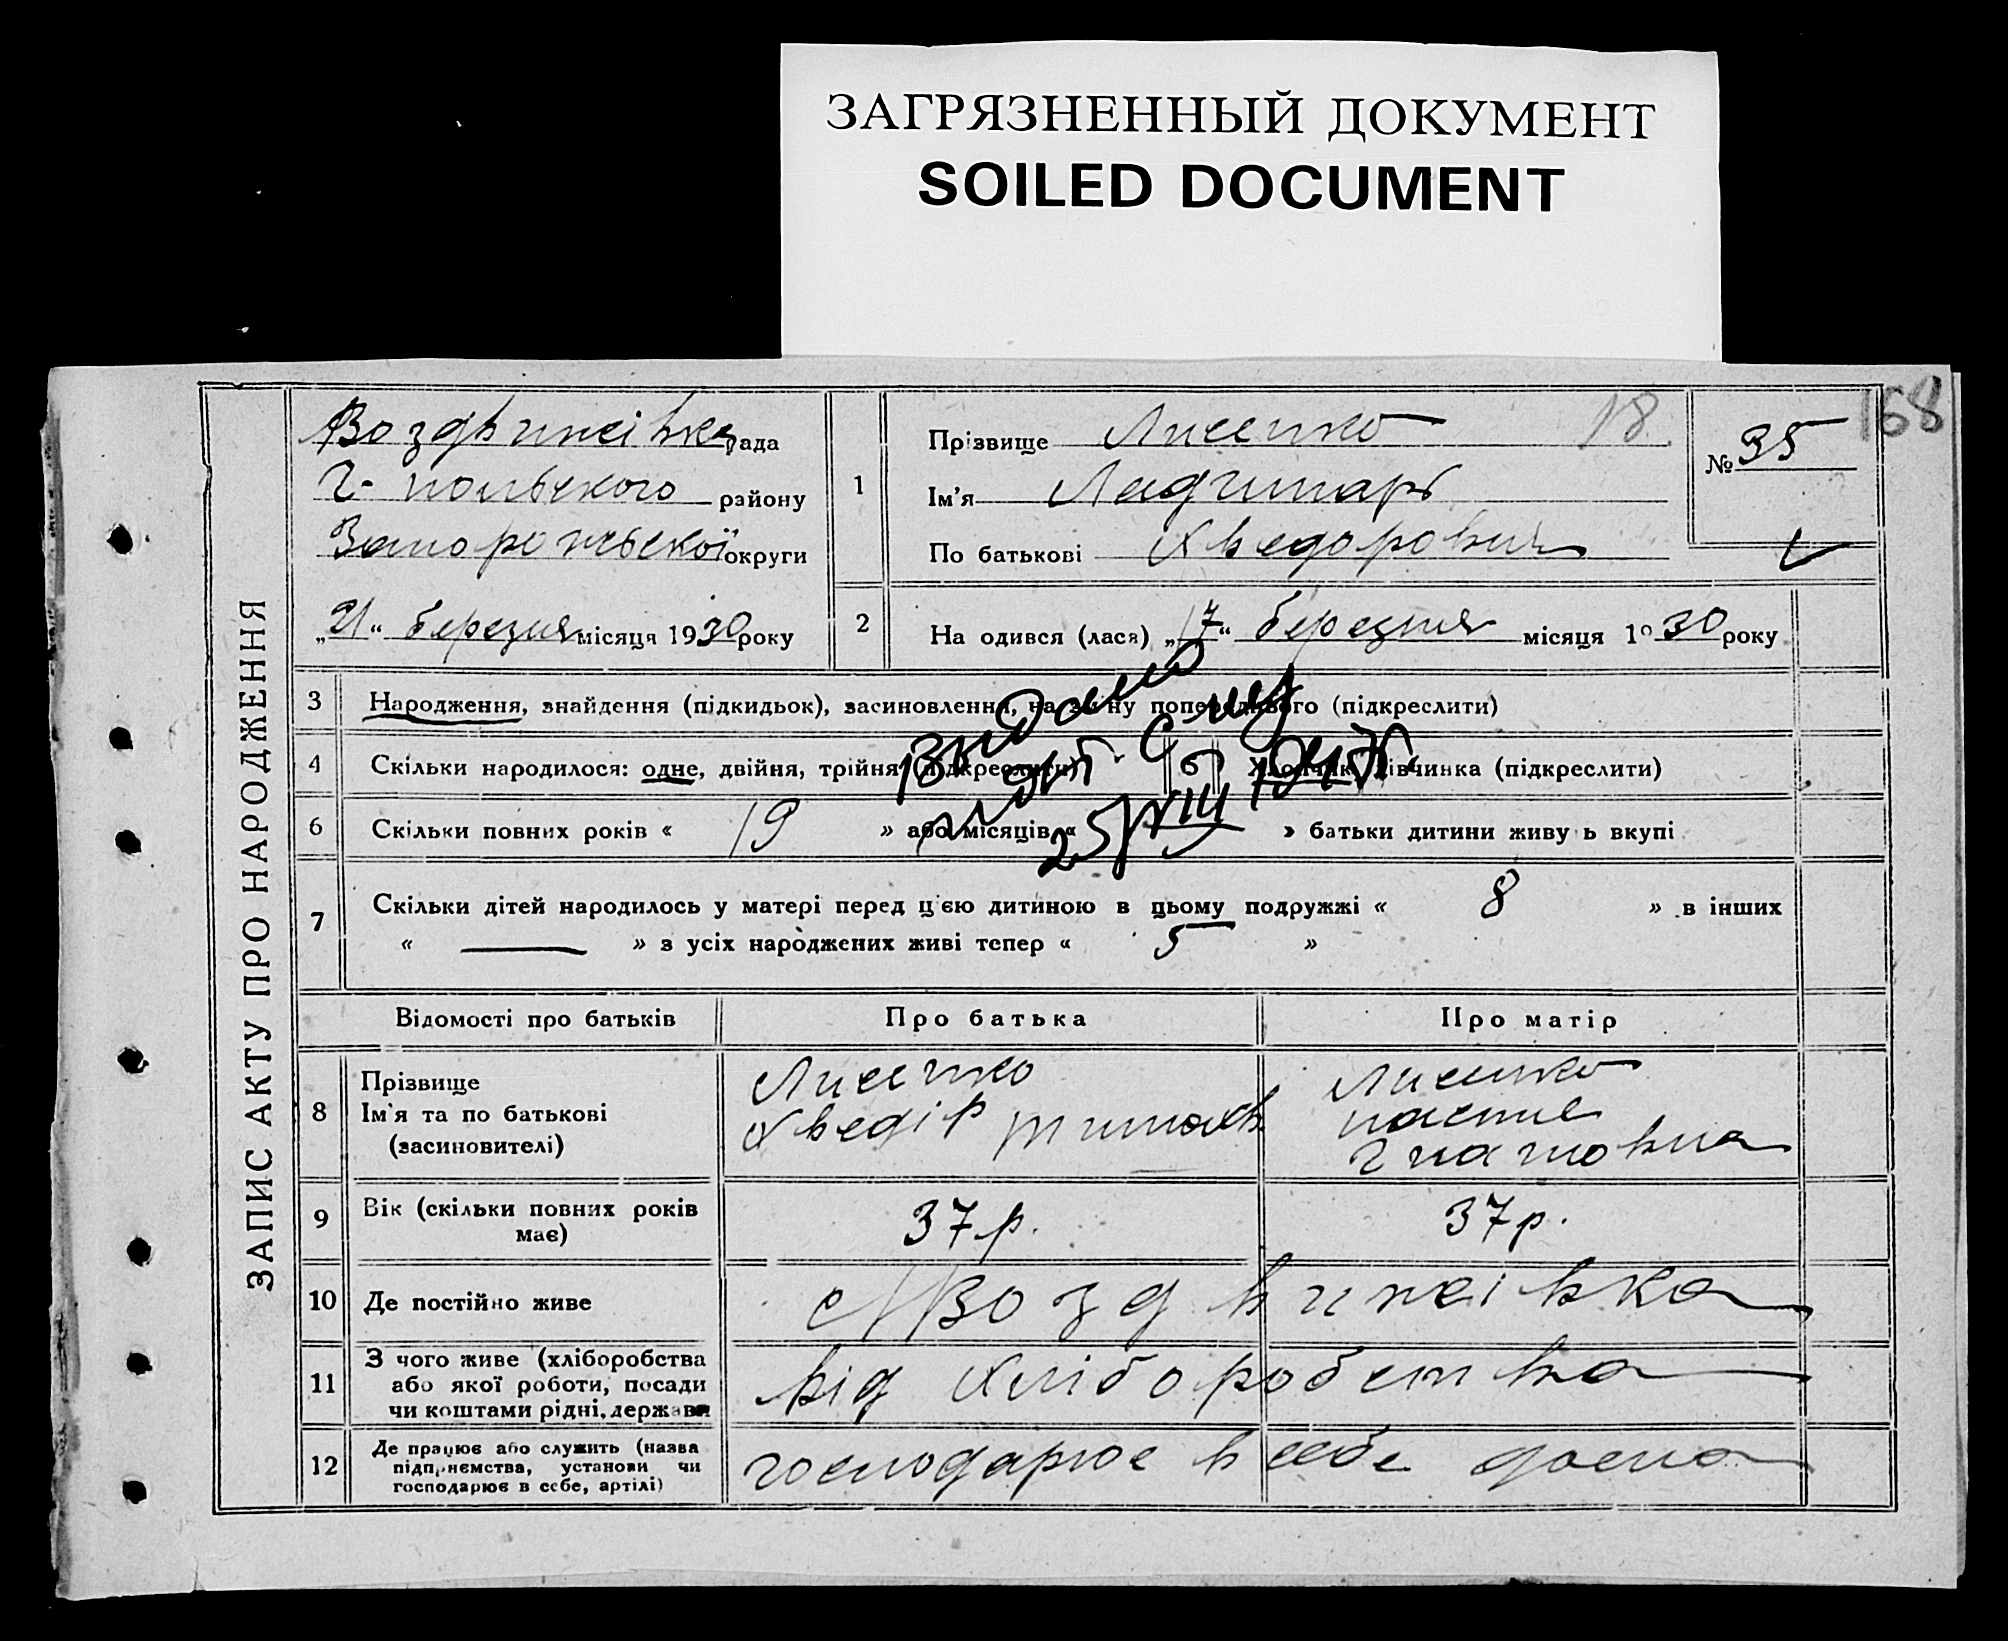 ЗАГРЯЗНЕННЫЙ ДОКУМЕНТ
SOILED DOCUMENT
168
ЗАПИС АКТУ ПРО НАРОДЖЕННЯ
Воздвижівка рада
Г-польского району
Запорожської округи
„21“ березня місяця 1930 року
1
Прізвище Лисенко 18
Ім'я
По батькові Хведорович
№ 35
2
На одився (лася) „17“ березня місяця 1930 року
3 Народження, знайдення (підкидьок), засиновлення, на зміну попереднього (підкреслити)
4 Скільки народилося: одне, двійня, трійня (підкреслити) 5 Хлопчик, дівчинка (підкреслити)
Выдано
25/VIII
6 Скільки повних років « 19 » або місяців « » батьки дитини живуть вкупі
7 Скільки дітей народилось у матері перед цією дитиною в цьому подружжі « 8 » в інших
« — » з усіх народжених живі тепер « 5 »
Відомості про батьків Про батька Про матір
8 Прізвище Лисенко Лисенко
Ім'я та по батькові Хведір
(засиновителі) Гнатовна
9 Вік (скільки повних років має) 37 р. 37 р.
10 Де постійно живе с/Воздвижівка
11 З чого живе (хліборобства
або якої роботи, посади
чи коштами рідні, держави від хліборобства
12 Де працює або служить (назва
підприємства, установи чи
господарює в себе, артілі) господарює в себе дома